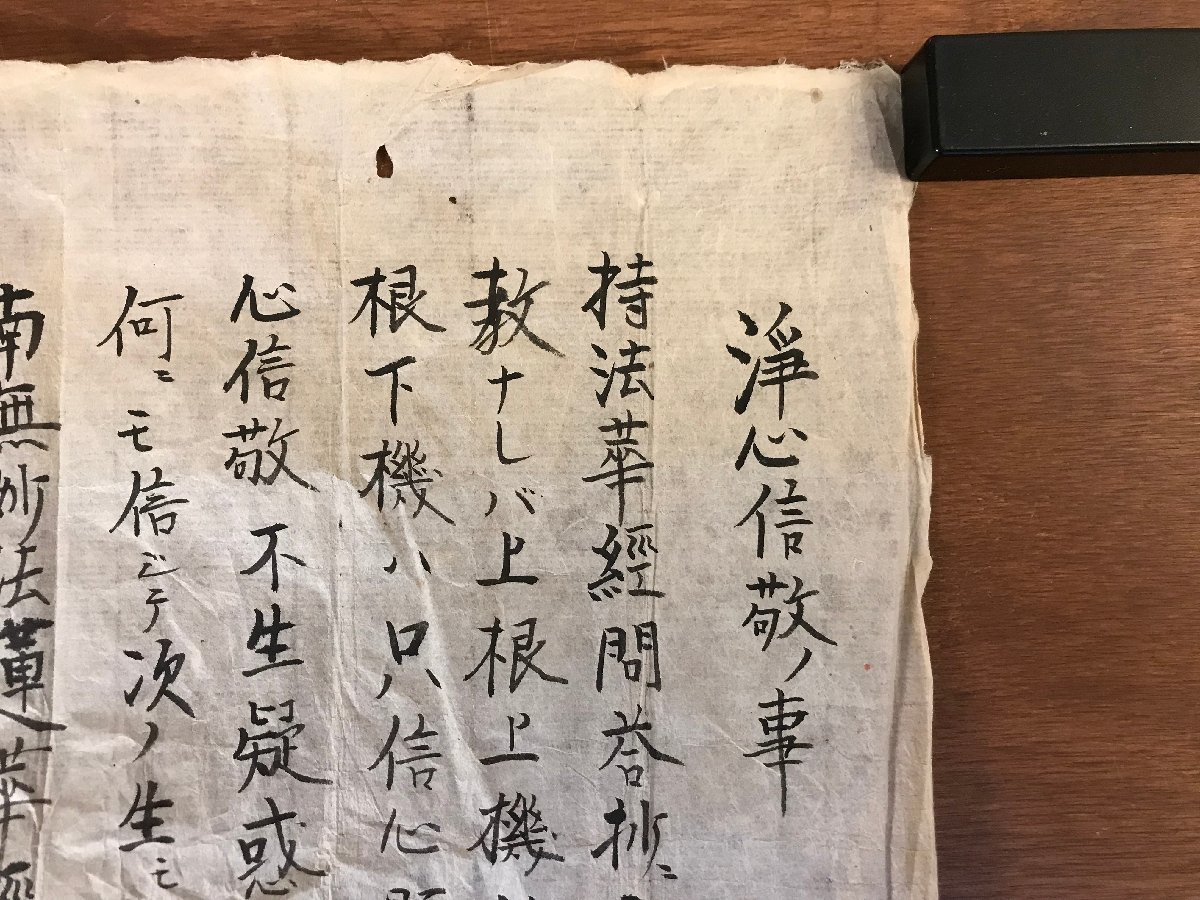 淨心信敬ノ事
持法華經問荅抄ニ
教ナレバ上根上機
根下機ハ只信心
心信敬不生疑惑
何ニモ信ジテ次ノ生モ
南無妙法蓮華經